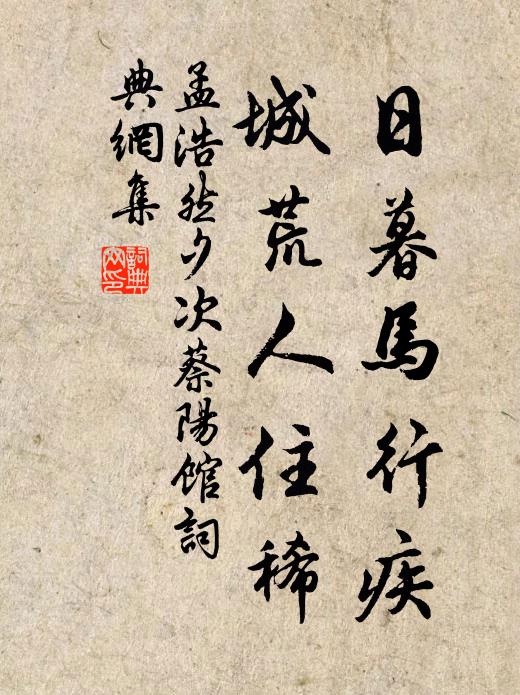 日暮馬行疾
城荒人住稀
孟浩然夕次蔡陽館詞
典網集
詞典